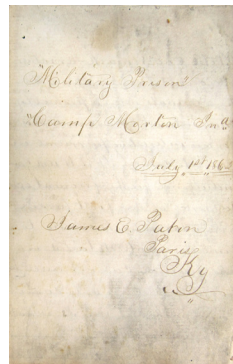 Military Prison
"Camp Morton Ina
July 1st 186
James E.
Paris
Ky